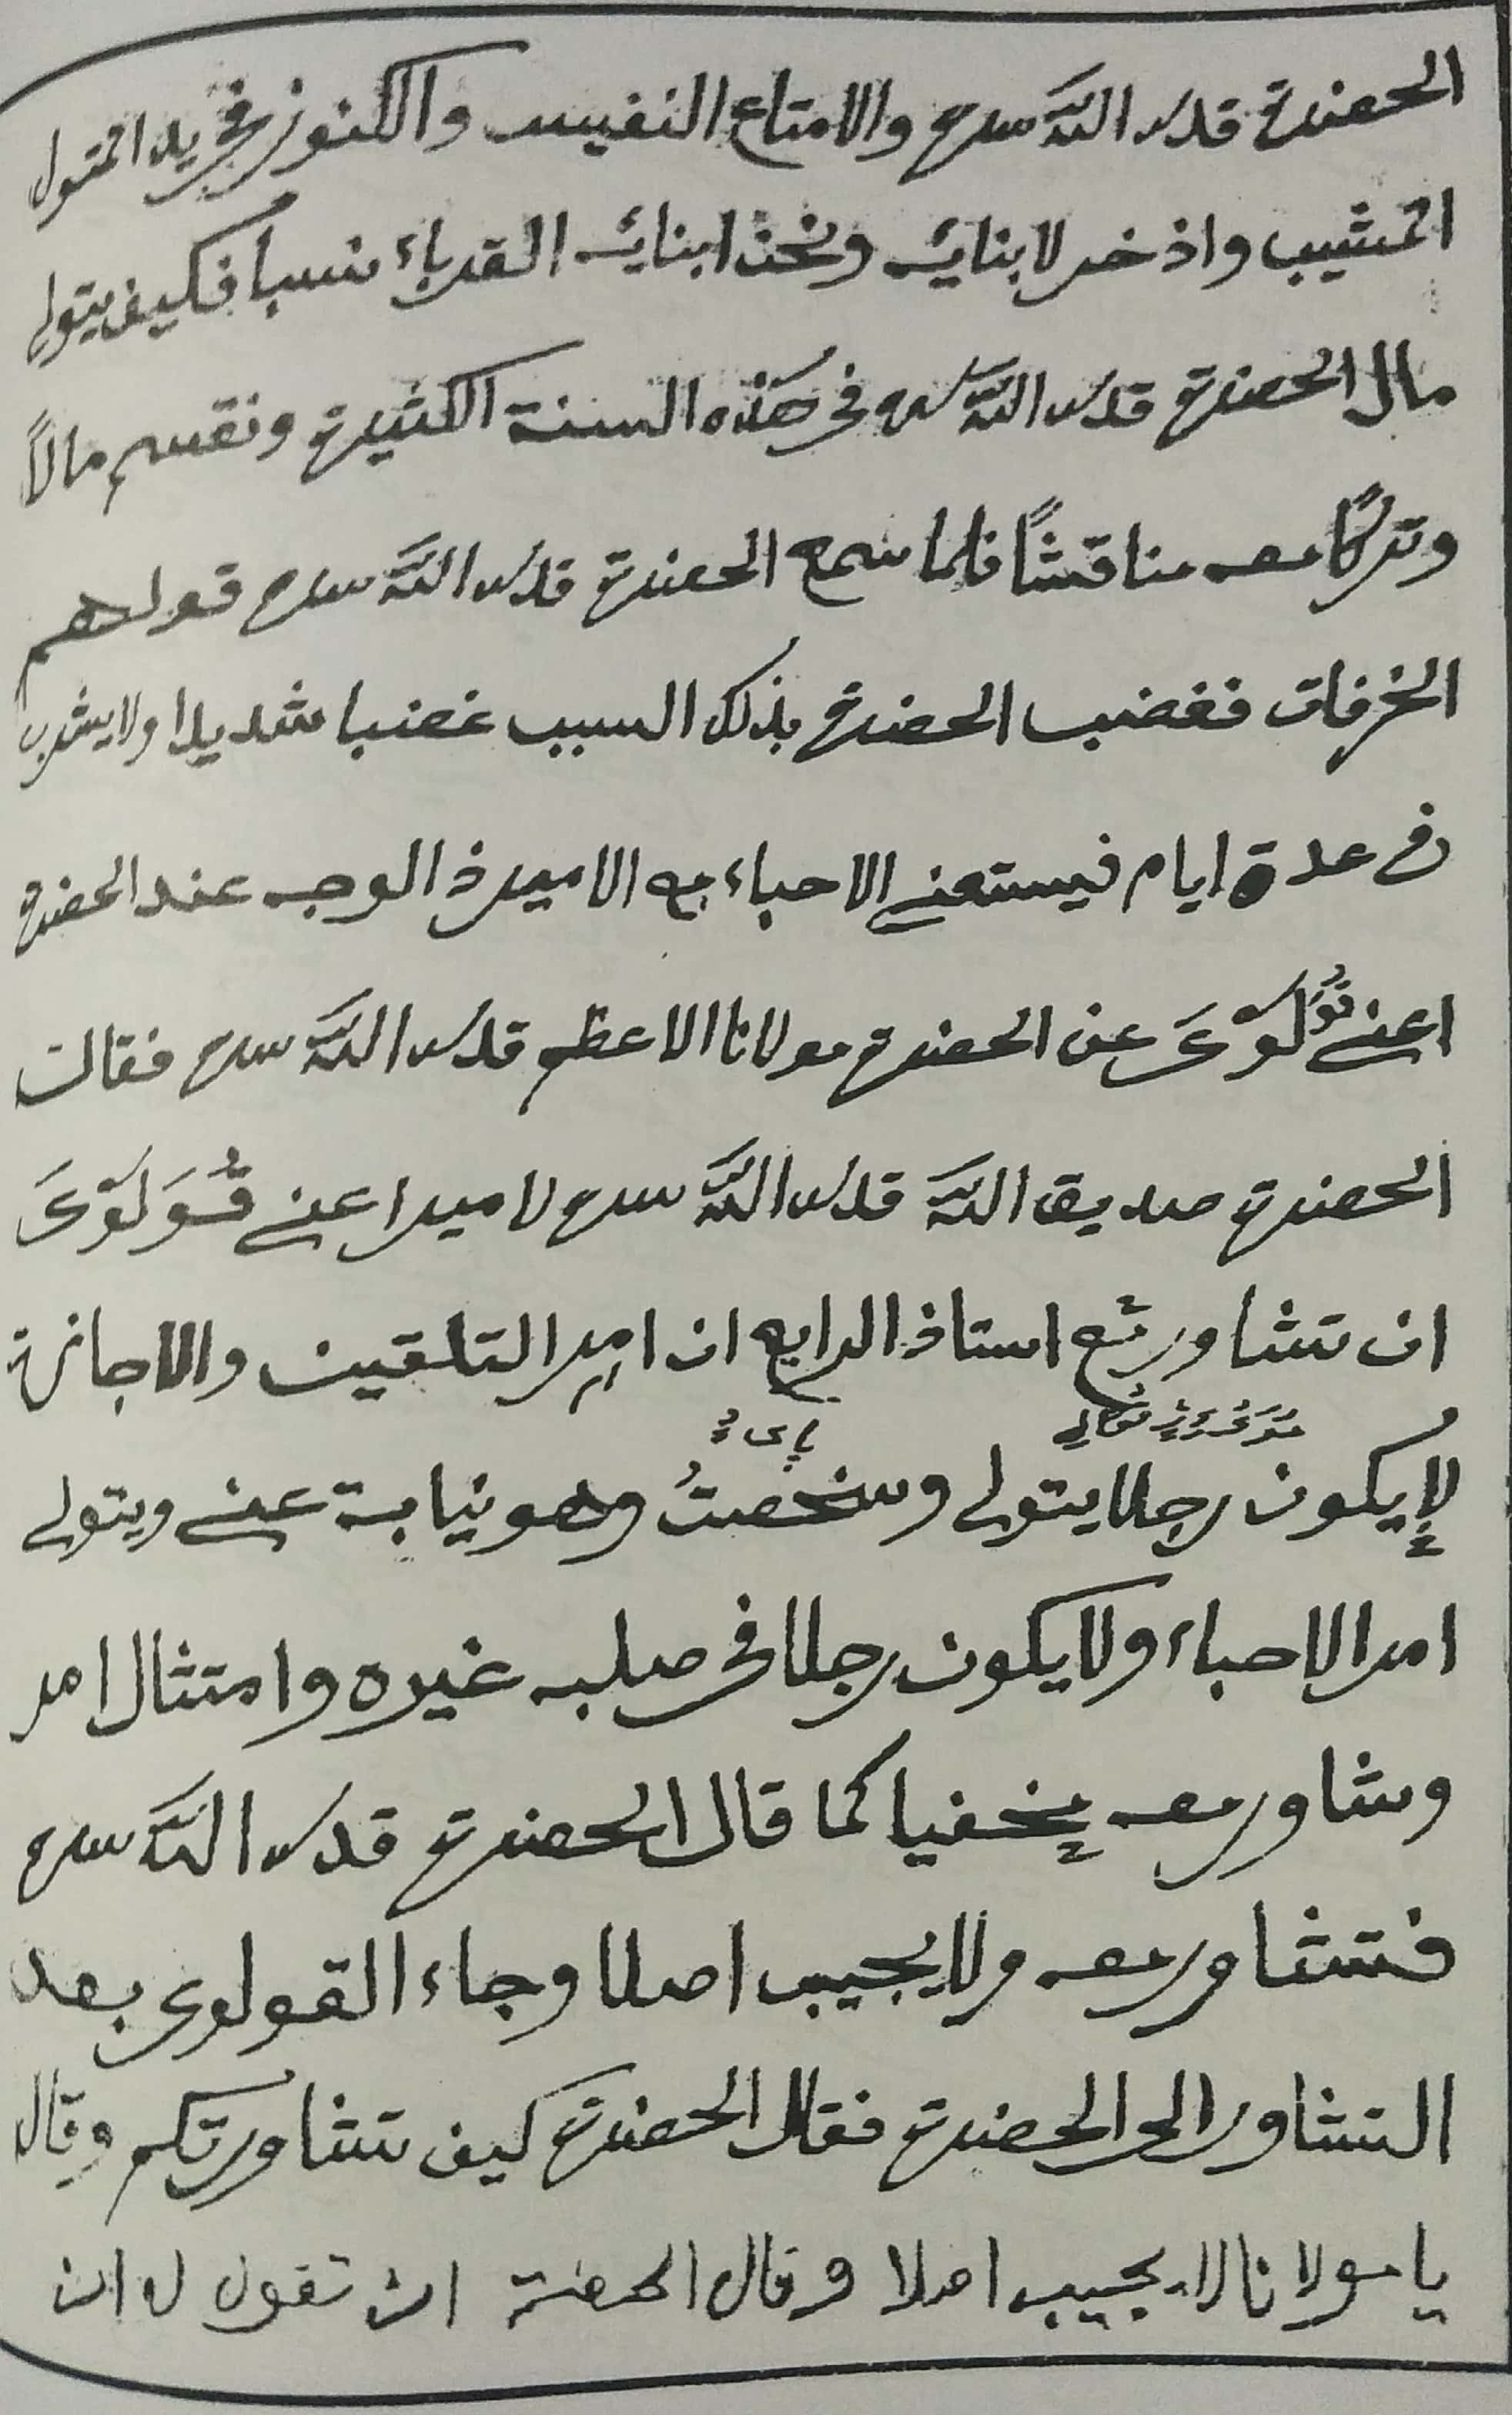 الحضرة قدس الله سره والامتاع النفيس والكنوز في يد المتولى
المشيب واذ خر لابنائه ونحن ابنائه القرباء نسبا فكيف يتولى
مال الحضرة قدس الله سره في هذه السنة الكثيرة ونقسم مالاً
وتركا معه مناقشًا فلما سمع الحضرة قدس الله سره قولهم
الخرفات فغضب الحضرة بذلك السبب غضبا شديدا ولا يشرب
في عدة ايام فيستعنى الاحباء به الامير ذ الوجه عند الحضرة
اعنى قُوَلَوَىَ عن الحضرة مولانا الاعظم قدس الله سره فقالت
الحضرة صديق الله قدس الله سره لامير اعنى قُوَلَوَىَ
ان تشاور مع استاذ الرابع ان امر التلقين والاجازة
لإيكون رجلا يتولى وسنخصتُ وهو نيابة عنى ويتولى
امر الاحباء ولا يكون رجلا فى صلبه غيره وامتثال امر
وشاور معه يخفيا كما قال الحضرة قدس الله سره
فتشاور معه ولا يجيب اصلا وجاء القولوى بعد
التشاور الى الحضرة فقال الحضرة كيف تشاورتكم وقال
يا مولانا لا يجيب اصلا وقال الحضرة ان تقول له ان